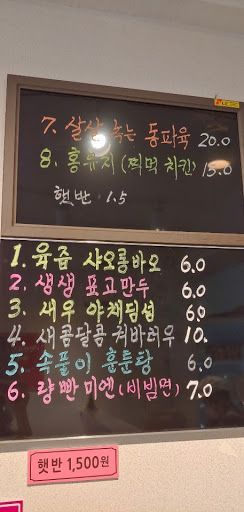 7. 살살 녹는 동파육 20.0
8. 홍유지 (찍먹 치킨) 15.0
햇반 1.5
1. 육즙 샤오롱바오 6.0
2. 생생 표고만두 6.0
3. 새우 야채딤섬 6.0
4. 새콤달콤 꿔바러우 10.
5. 속풀이 훈툰탕 6.0
6. 량빤미엔 (비빔면) 7.0
햇반 1,500원